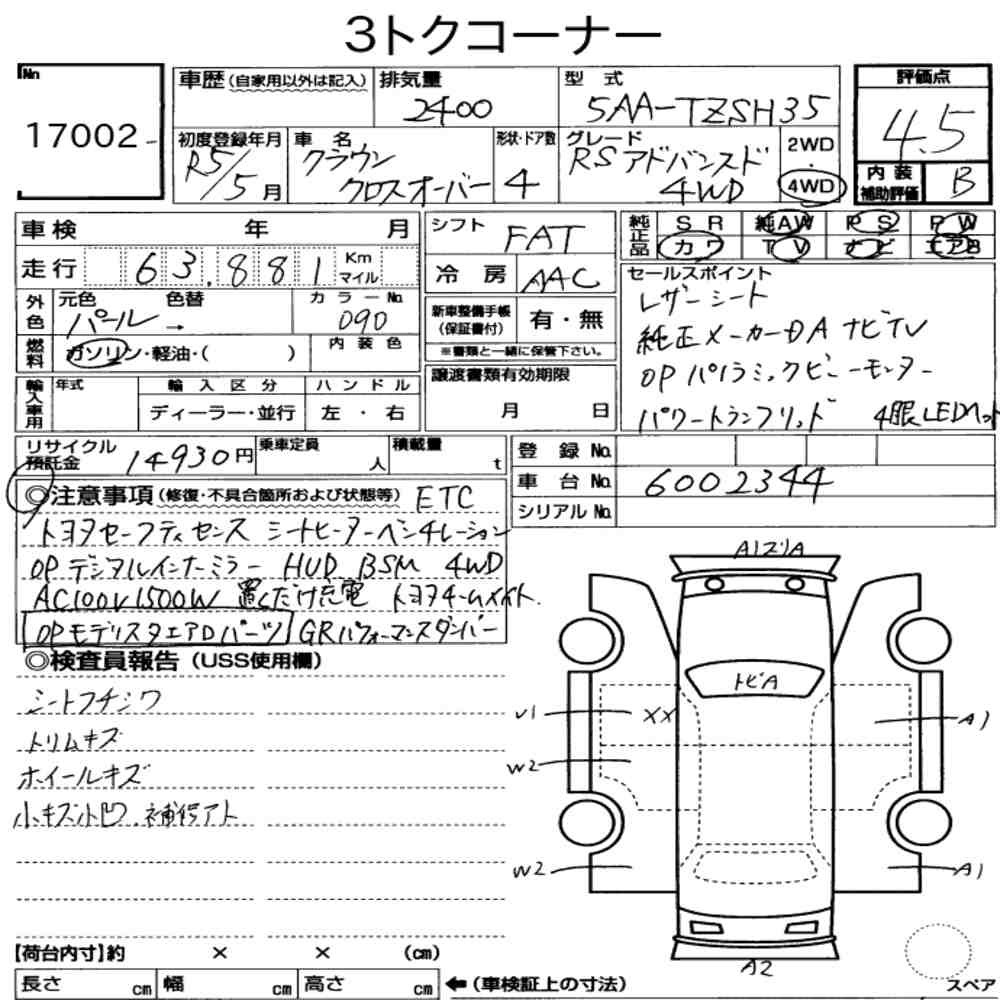 3トクコーナー
No 17002
車歴 (自家用以外は記入) 排気量 2400 型式 5AA-TZSH35
評価点 4.5
初度登録年月 R5/5月 車名 クラウン クロスオーバー 形状・ドア数 4 グレード RSアドバンスド 4WD 2WD 4WD
内装補助評価 B
車検 年 月 シフト FAT 純正品 SR 純AW PS PW
走行 63,881 Km マイル 冷房 AAC カワ TV ナビ エアB
外色 元色 パール → 色替 カラーNo. 090
新車整備手帳(保証書付) 有・無
※書類と一緒に保管下さい。
セールスポイント
レザーシート
純正メーカーDA ナビTV
OPパノラミックビューモニター
パワートランクリッド 4眼LEDヘッド
燃料 ガソリン・軽油・( ) 内装色
譲渡書類有効期限 月 日
輸入車用 年式 輸入区分 ハンドル
ディーラー・並行 左・右
リサイクル預託金 14930円 乗車定員 人 積載量 t
登録No.
車台No. 6002344
シリアルNo.
◎注意事項(修復・不具合箇所および状態等) ETC
トヨタセーフティセンス シートヒーターベンチレーション
OPデジタルインナーミラー HUD BSM 4WD
AC100V1500W 置くだけ充電 トヨタチームメイト
OPモデリスタエアロパーツ GRパフォーマンスダンパー
◎検査員報告(USS使用欄)
シートフチシワ
トリムキズ
ホイールキズ
小キズ小凹、補修アト
A1 A
トビA
U1 XX A1
W2
W2 A1
A2
スペア
【荷台内寸】約 × × (cm)
長さ cm 幅 cm 高さ cm ←(車検証上の寸法)